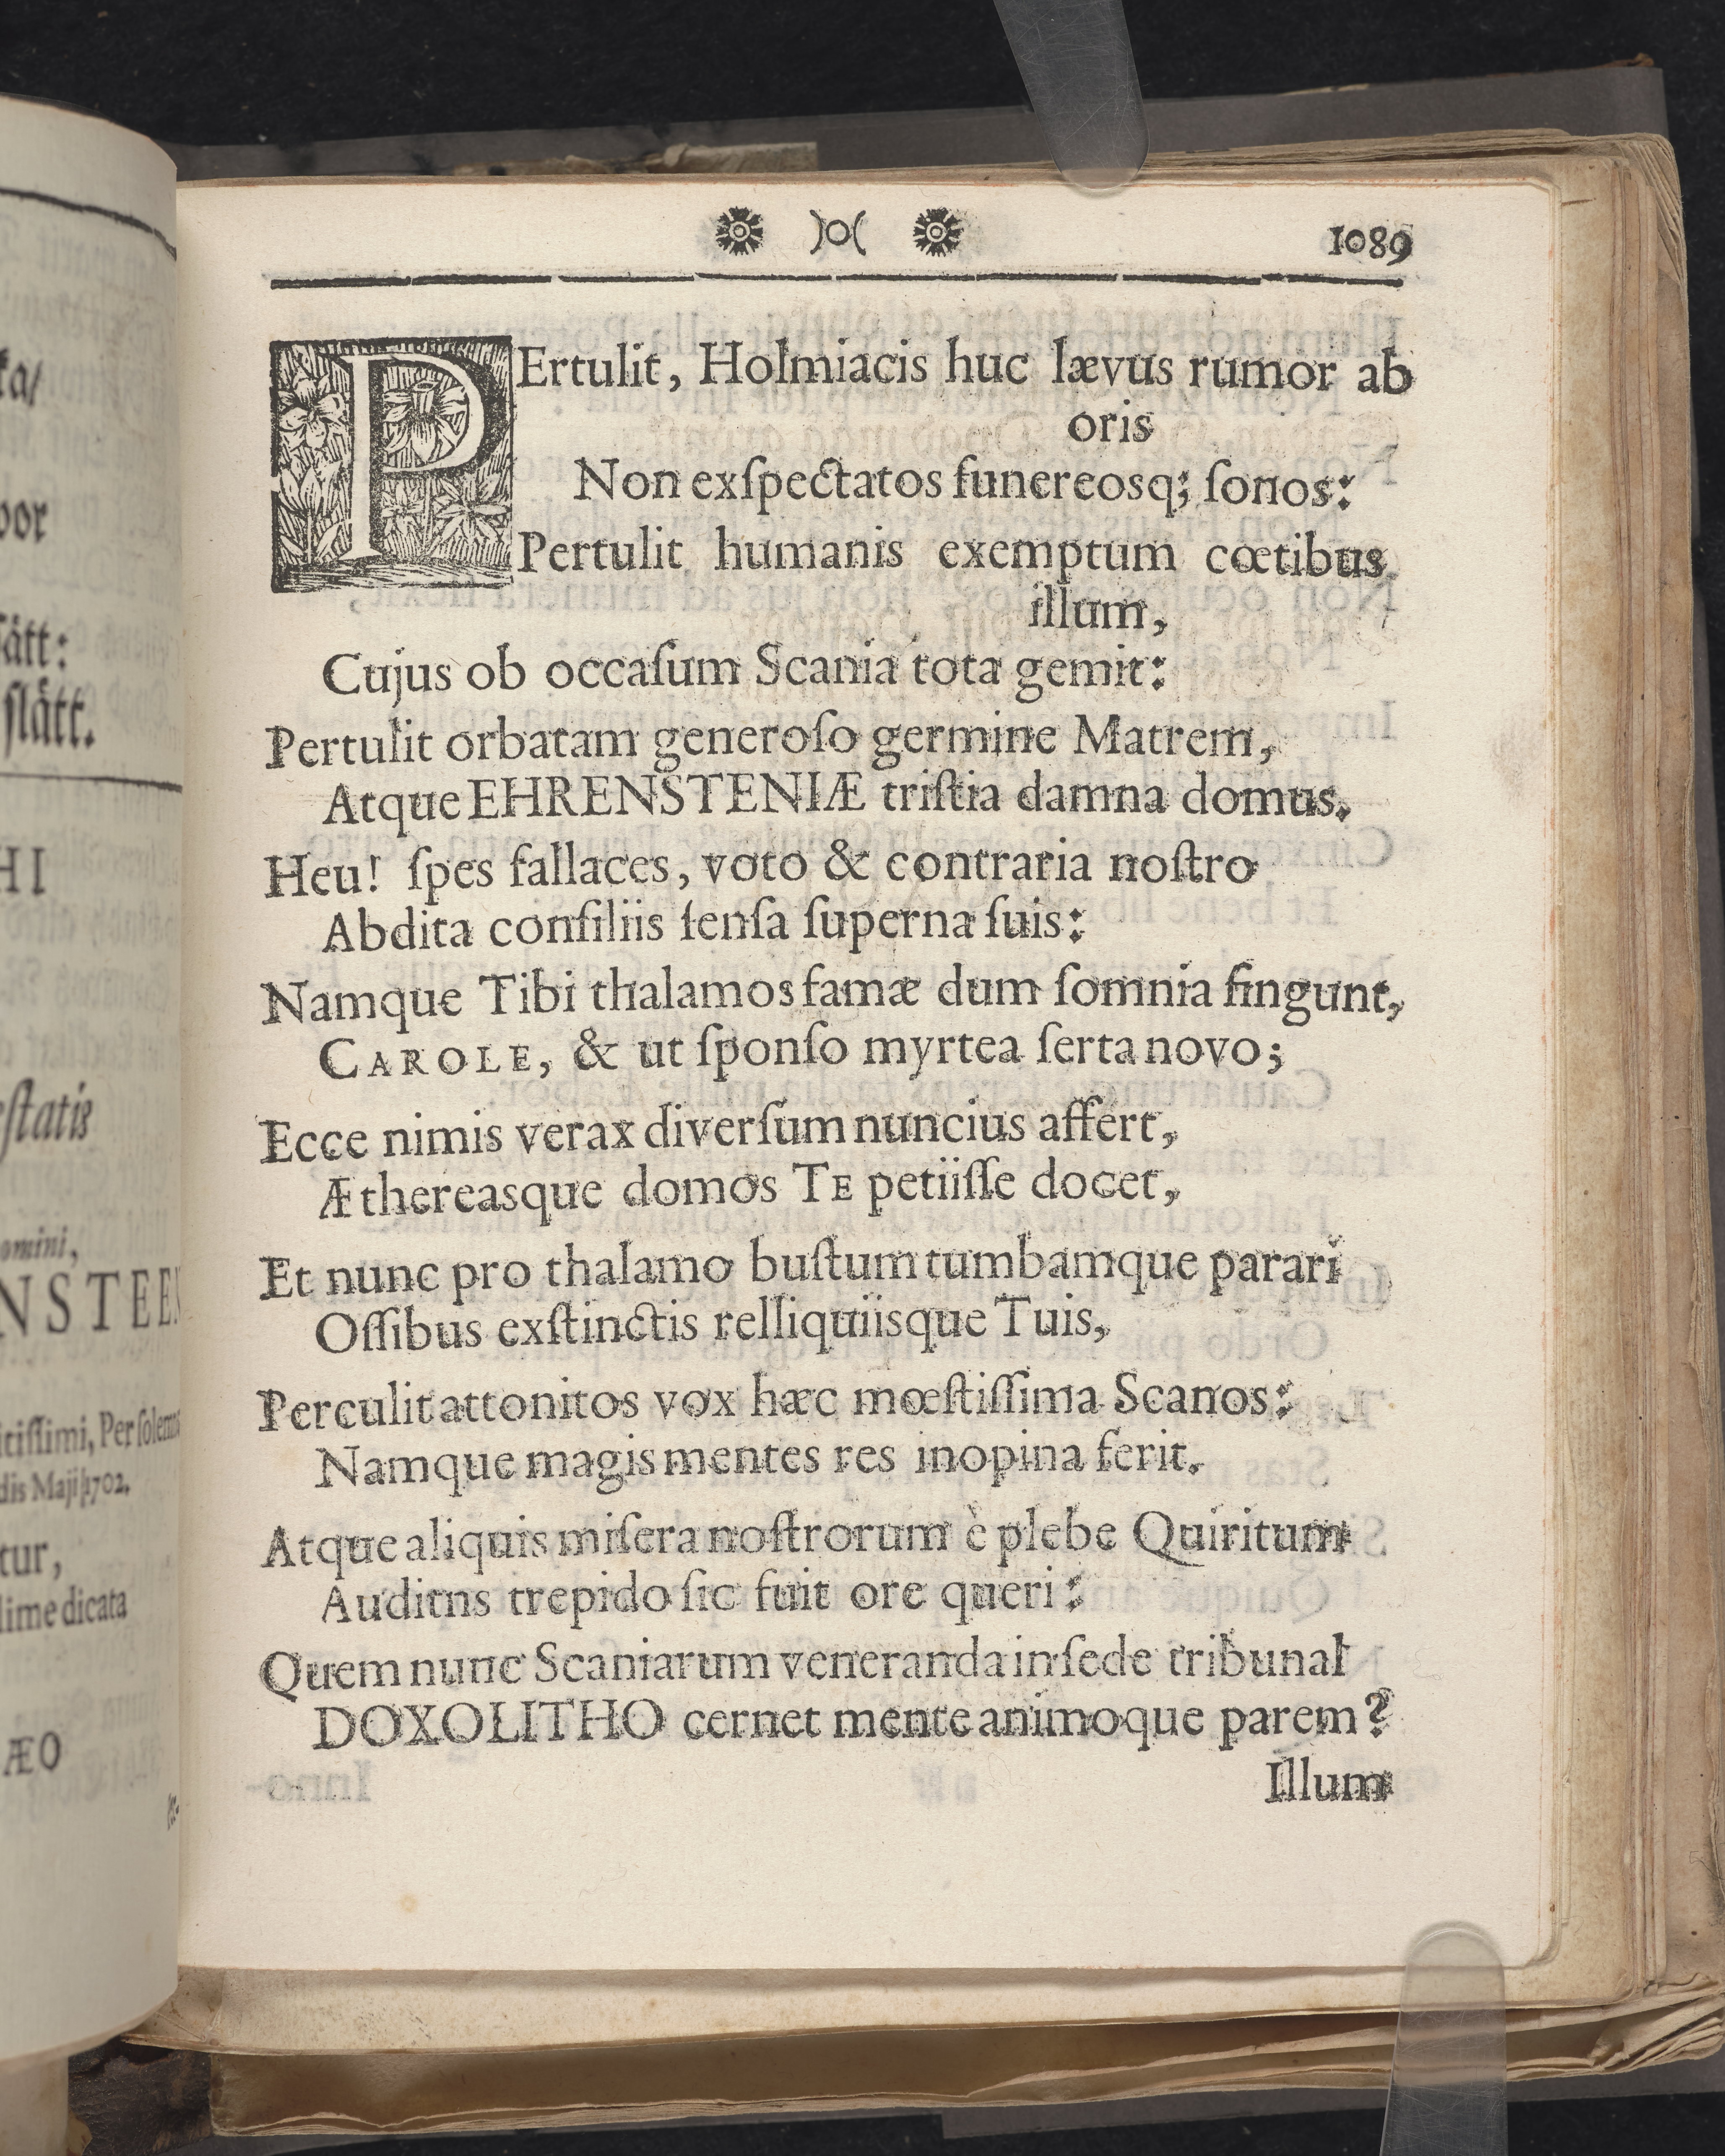 1089
PErtulit, Holmiacis huc lævus rumor ab
oris
Non exſpectatos funereosq; ſonos:
Pertulit humanis exemptum cœtibus
illum,
Cujus ob occaſum Scania tota gemit:
Pertulit orbatam generoſo germine Matrem,
Atque EHRENSTENIÆ triſtia damna domus.
Heu! ſpes fallaces, voto & contraria noſtro
Abdita conſiliis ſenſa ſuperna ſuis:
Namque Tibi thalamos famæ dum ſomnia fingunt,
CAROLE, & ut ſponſo myrtea ſerta novo;
Ecce nimis verax diverſum nuncius affert,
Æthereasque domos TE petiiſſe docet,
Et nunc pro thalamo buſtum tumbamque parari
Oſſibus exſtinctis relliquiisque Tuis,
Perculit attonitos vox hæc mœſtiſſima Scanos:
Namque magis mentes res inopina ferit.
Atque aliquis miſera noſtrorum è plebe Quiritum
Auditns trepido ſic fuit ore queri:
Quem nunc Scaniarum veneranda in ſede tribunal
DOXOLITHO cernet mente animoque parem?
Illum
ätt:
ſlätt.
HI
omini,
NSTEEN
dis Maji 1702.
tur,
dicata
ÆO